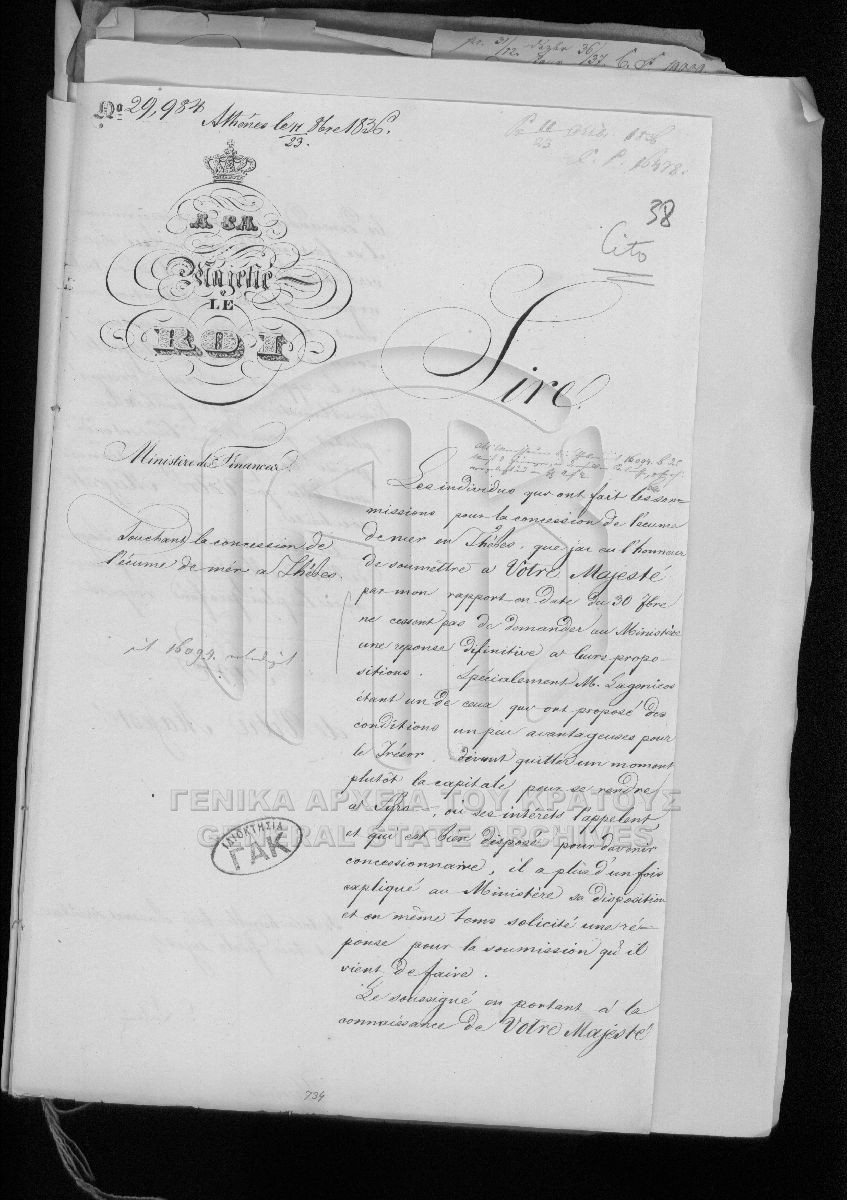 No 29,984
Athénes le 11/23. 8bre 1836.
38
Cito
A SA
Majesté
LE
ROI
Sire.
Ministère des Finances.
Touchant la concession de
l'écume de mér a Thébes.
Les individus qui ont fait les sou-
missions pour la concession de l'ecume
de mer en Thébes, que j'ai eu l'honneur
de soumêttre a Votre Majesté
par mon rapport en date du 30 7bre
ne cessent pas de demander au Ministère
une reponse définitive a leurs propo-
sitions. Spécialement M. Pagonicos
étant un de ceux qui ont proposé des
conditions un peu avantageuses pour
le Trésor, devant quitter un moment
plutôt la capitale pour se rendre
a Syra, ou ses intérêts l'appelent,
et qui est bien disposé pour davenir
concessionnaire, il a plus d'un fois
expliqué au Ministère sa disposition
et en même tems solicité une ré-
ponse pour la soumission qu'il
vient de faire.
Le soussigné en portant à la
connaissance de Votre Majesté
ΓΕΝΙΚΑ ΑΡΧΕΙΑ ΤΟΥ ΚΡΑΤΟΥΣ
GENERAL STATE ARCHIVES
ΙΔΙΟΚΤΗΣΙΑ
ΓΑΚ
734